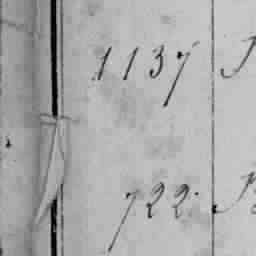 1137
722